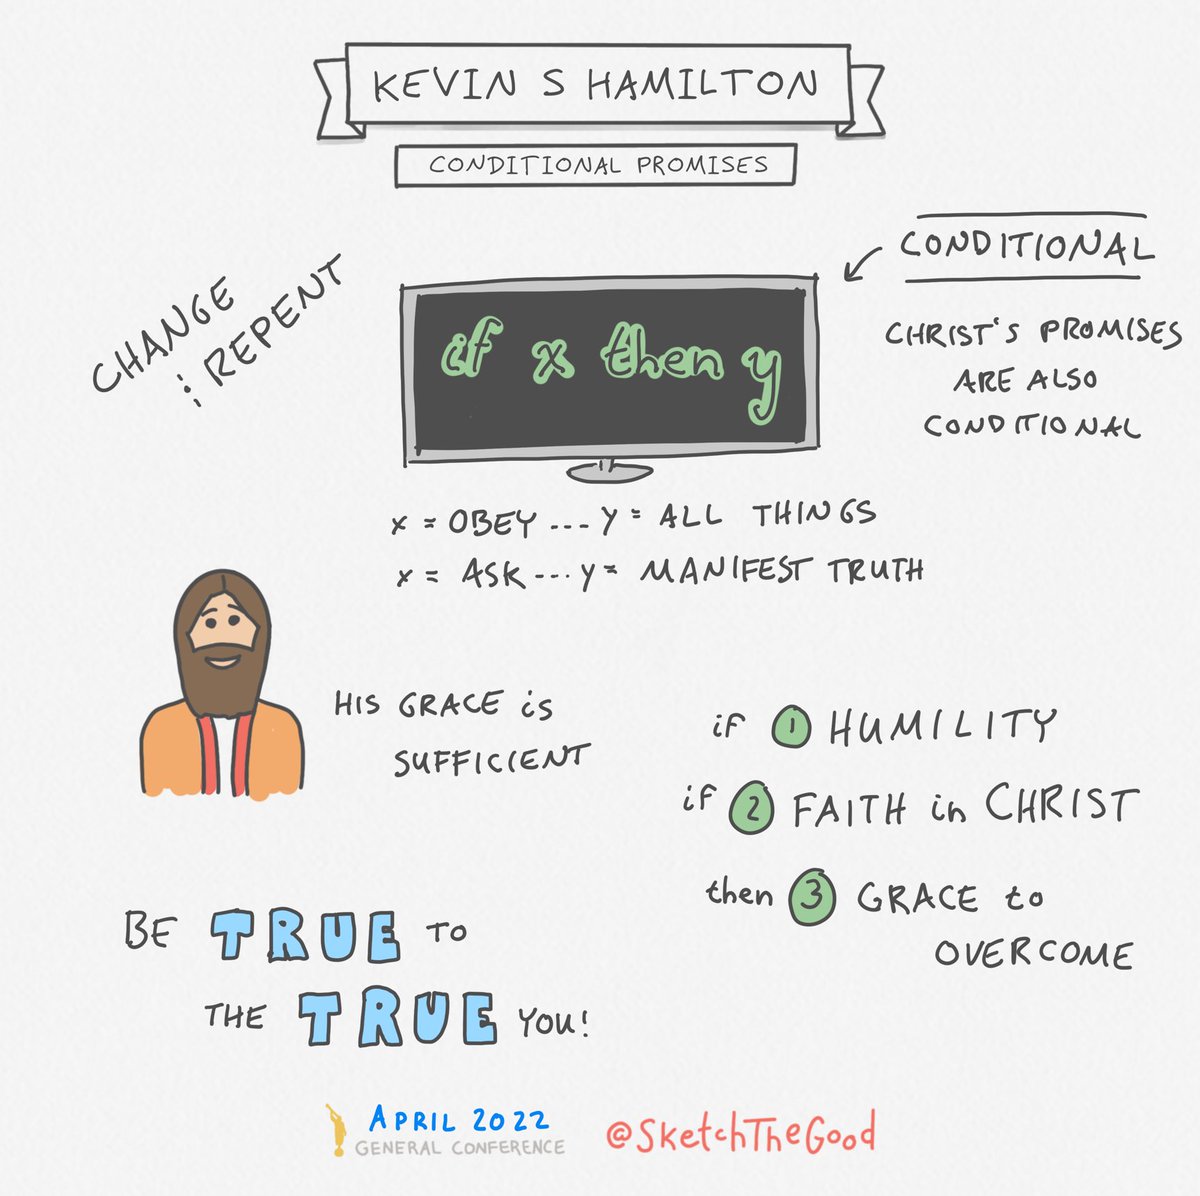 KEVIN S HAMILTON
CONDITIONAL PROMISES
CHANGE
; REPENT
if x then y
CONDITIONAL
CHRIST'S PROMISES
ARE ALSO
CONDITIONAL
x = OBEY ... y = ALL THINGS
x = ASK ... y = MANIFEST TRUTH
HIS GRACE is
SUFFICIENT
if 1 HUMILITY
if 2 FAITH in CHRIST
then 3 GRACE to
OVERCOME
BE TRUE TO
THE TRUE YOU!
APRIL 2022
GENERAL CONFERENCE
@SketchTheGood